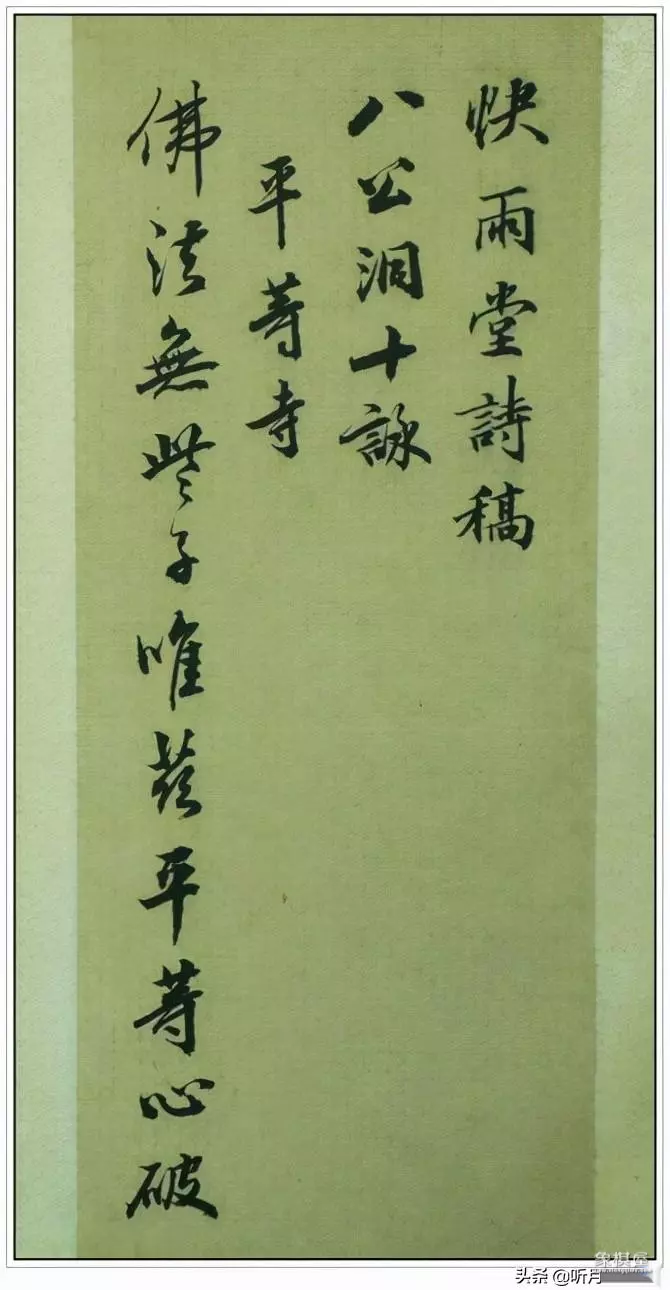 快雨堂詩稿
八公洞十詠
平等寺
佛法無些子唯茲平等心破
象棋屋
头条 @听月